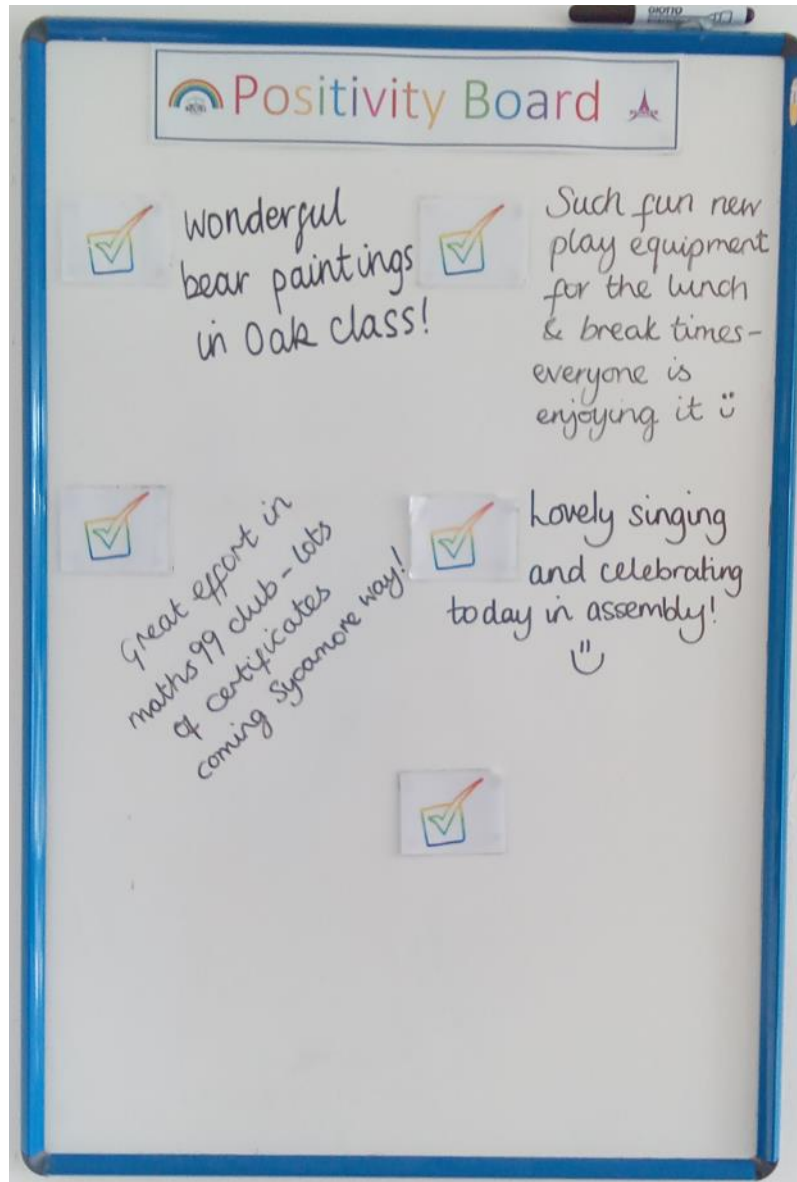 GIOTTO
Positivity Board
wonderful
bear paintings
in Oak class!
Such fun new
play equipment
for the lunch
& break times-
everyone is
enjoying it
Great effort in
maths 99 club - lots
of certificates
coming Sycamore way!
Lovely singing
and celebrating
today in assembly!